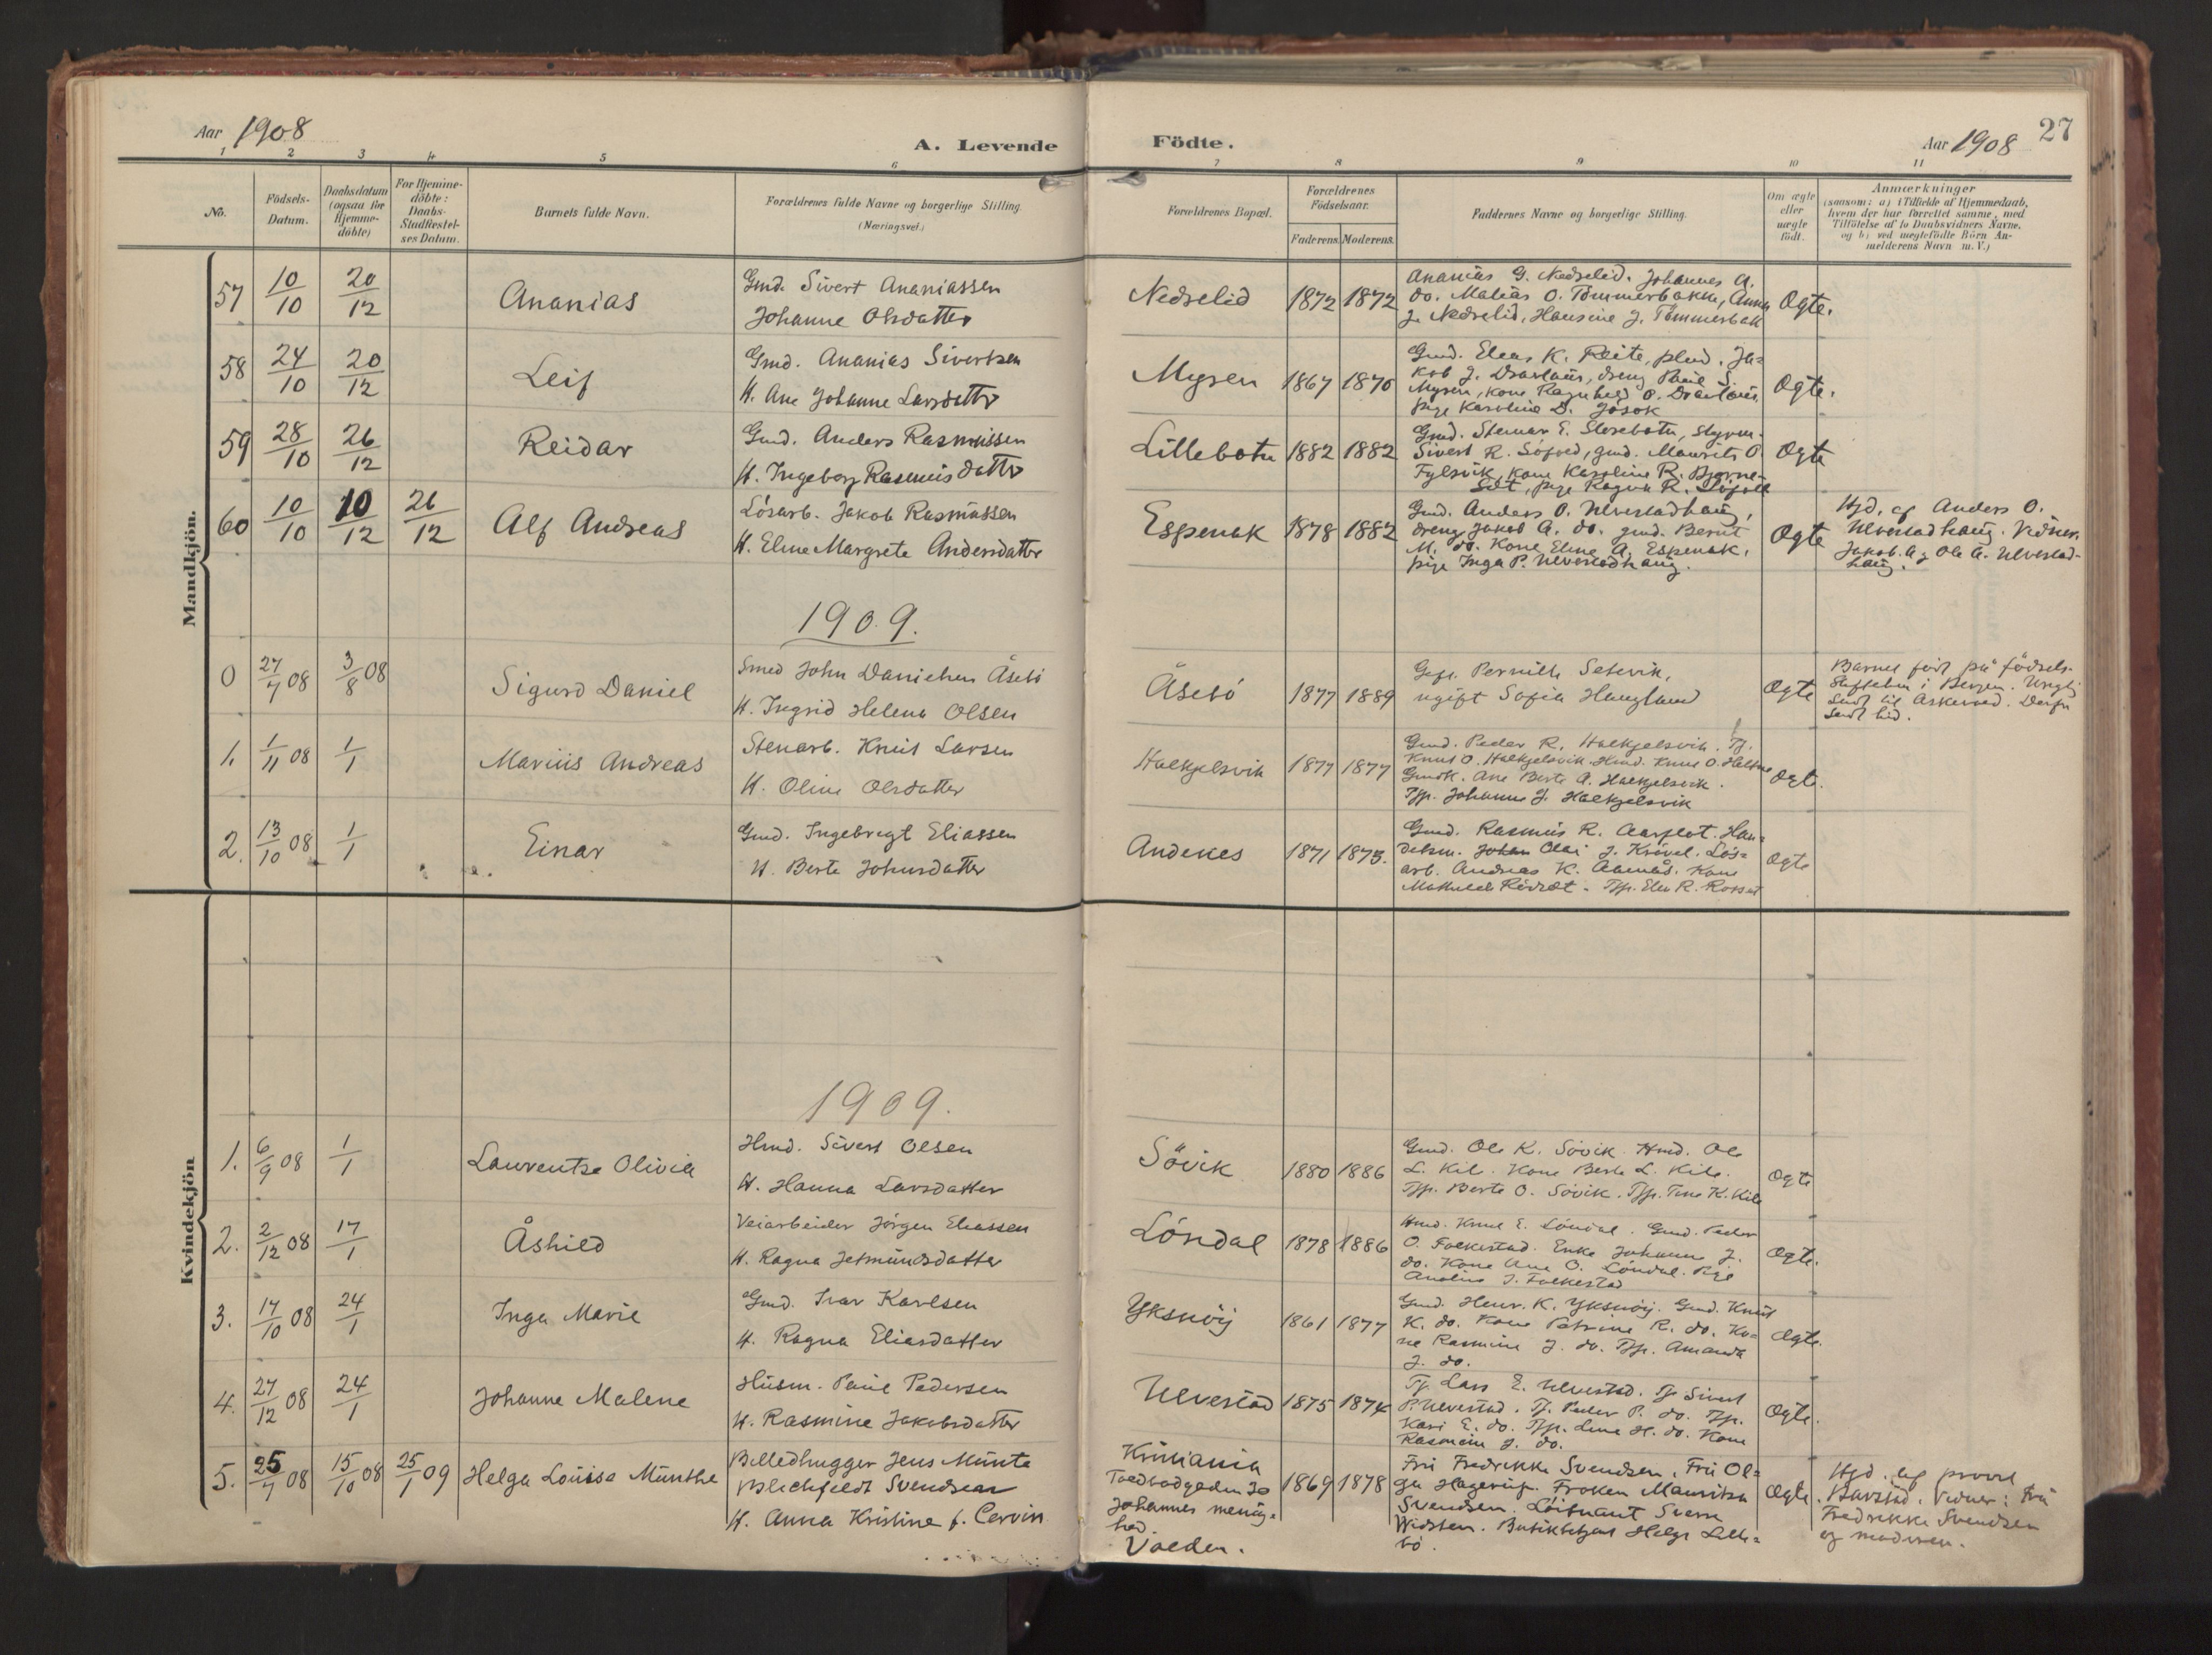 Aar 1908
A. Levende
Födte.
Aar 1908
27
1 2 3 4 5 6 7 8 9 10 11
No.
Födsels-
Datum.
Daabsdatum
(ogsaa for
Hjemme-
döbte)
For Hjemme-
döbte:
Daabs-
Stadfæstel-
ses Datum.
Barnets fulde Navn.
Forældrenes fulde Navne og borgerlige Stilling
(Næringsvei.)
Forældrenes Bopæl.
Forældrenes
Födselsaar.
Faderens. Moderens.
Faddernes Navne og borgerlige Stilling.
Om ægte
eller
uægte
födt.
Anmærkninger
(saasom: a) i Tilfælde af Hjemmedaab,
hvem der har forrettet samme, med
Tilföielse af to Daabsvidners Navne,
og b) ved uægtefödte Börn An-
melderens Navn m. V.)
Mandkjön.
57 10/10 20/12 Ananias
Gmd. Sivert Ananiassen
Johanne Olsdatter
Nedrelid 1872 1872
Ananias G. Nedrelid. Johannes A.
do. Matias O. Tömmerbakke, Anna
J. Nedrelid, Hansine J. Tömmerbak
Ægte.
58 24/10 20/12 Leif
Gmd. Ananias Sivertsen
H. Ane Johanne Larsdattr
Myren 1867 1870
Gmd. Elias K. Reite,
Myren, kone Ragnhild O.
Ægte.
59 28/10 26/12 Reidar
Gmd. Anders Rasmussen
H. Ingeborg Rasmusdattr
Lillebotn 1882 1882
Gmd. Steinar E. Storebotn, styrm.
Sivert R. gmd. Maurits O.
kone Karoline R. Bjørne-
Ægte
60 10/10 10/12 26/12 Alf Andreas
Lösarb. Jakob Rasmussen
H. Eline Margrete Andersdatter
Espenak 1878 1882
Gmd. Anders O. Ulvestadhaug,
dreng Jakob A. do. gmd. Bernt
M. do. Kone Eline A. Espenak,
pige Inga P. Ulvestadhaug.
Ægte
Hjd. af Anders O.
Ulvestadhaug. Vidner.
Jakob A. og Ole A. Ulvestad-
haug.
1909.
0 27/7 08 3/8 08 Sigurd Daniel
Smed John Danielsen Åsebö
H. Ingrid Helena Olsen
Åsebö 1877 1889
Pernille Setevik,
ugift Sofia Haugland
Ægte
Barnet födt på födsels-
stiftelsen i Bergen.
sendt til Askevold. Derfra
sendt hid.
1. 1/11 08 1/1 Marius Andreas
Stenarb. Knut Larsen
H. Oline Olsdatter
Halkjelsvik 1877 1877
Gmd. Peder R. Halkjelsvik. Tj.
Knut O. Halkjelsvik. Hmd. Knut O.
Gmdk. Ane Berte A. Halkjelsvik.
Tjp. Johanne J. Halkjelsvik
Ægte.
2. 13/10 08 1/1 Einar
Gmd. Ingebrigt Eliassen
H. Berte Johnsdatter
Andenes 1871 1875.
Gmd. Rasmus R. Aarflot. Han-
delsm. Olai J. Krövel. Lös-
arb. Andreas K. Aamås. Kone
Ægte
Kvindekjön
1909.
1. 6/9 08 1/1 Laurentze Olivia
Hmd. Sivert Olsen
H. Hanna Larsdatter
Sövik 1880 1886
Gmd. Ole K. Sövik. Hmd. Ole
L. Kile. Kone Berte L. Kile.
Tjp. Berte O. Sövik. Tjp. Tine K. Kile
Ægte
2. 2/12 08 17/1 Åshild
Veiarbeider Jörgen Eliassen
H. Ragna Jetmundsdatter
Löndal 1878 1886
Hmd. Knut E. Löndal. Gmd. Peder
O. Folkestad. Enke Johanne J.
do. Kone Ane O. Löndal. Pige
Anoline J. Folkestad
Ægte.
3. 17/10 08 24/1 Inga Marie
Gmd. Ivar Karlsen
H. Ragna Eliasdatter
Yksnöy 1861 1877
Gmd. Henr. K. Yksnöy. Gmd. Knut
K. do. Kone Petrine R. do. Ko-
ne Rasmine J. do. Tjp. Amanda
J. do.
Ægte.
4. 27/12 08 24/1 Johanne Malene
Husm. Paul Pedersen
H. Rasmine Jakobsdatter
Ulvestad 1875 1874
Tj. Lars E. Ulvestad. Tj. Sivert
P. Ulvestad. Tj. Peder P. do. Tjp.
Kari E. do. Tjp. Line H. do. Kone
Rasmine J. do.
Ægte.
5. 25/7 08 15/10 08 25/1 09 Helga Louise Münthe
Billedhugger Jens Munte
Svendsen
H. Anna Kristine f. Cervin
Kristiania
Toldbodgaden 30
Johannes menig-
hed.
Volden.
1869 1878
Fru Fredrikke Svendsen, Fru Ol-
ga Hagerup. Fröken Mauritza
Svendsen. Löitnant Sverre
Widsten. Helge Lille-
bö.
Ægte.
Hjd. af provst
Barstad. Vidner: Fru
Fredrikke Svendsen
og moderen.